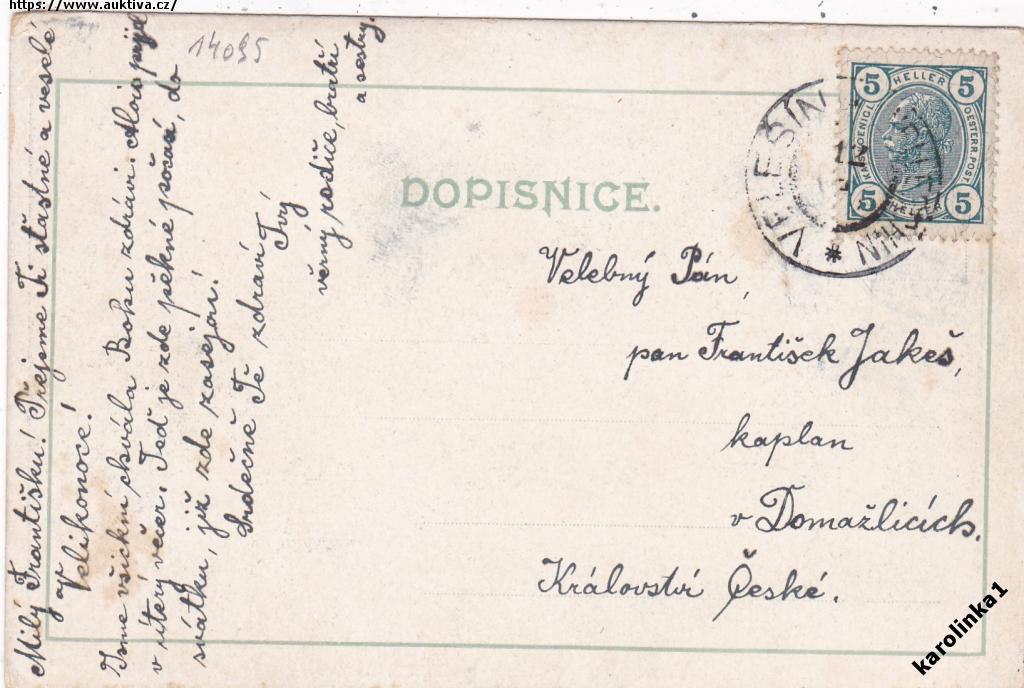 https://www.auktiva.cz/
14035
DOPISNICE.
5 HELLER 5
KAIS. KOENIGL. OESTERR. POST
5 HELLER 5
VELEŠIN
*
Velebný Pán,
pan František Jakeš,
kaplan
v Domažlicích.
Království České.
Milý Františku! Přejeme Ti šťastné a veselé
Velikonoce!
Jsme všickni chvála Bohu zdrávi. Alois přijel
v úterý večer. Teď je zde pěkné počasí, do
svátku již zde zasejou!
Srdečně Tě zdraví Tvý
věrný rodiče, bratři
a sestry.
karolinka1